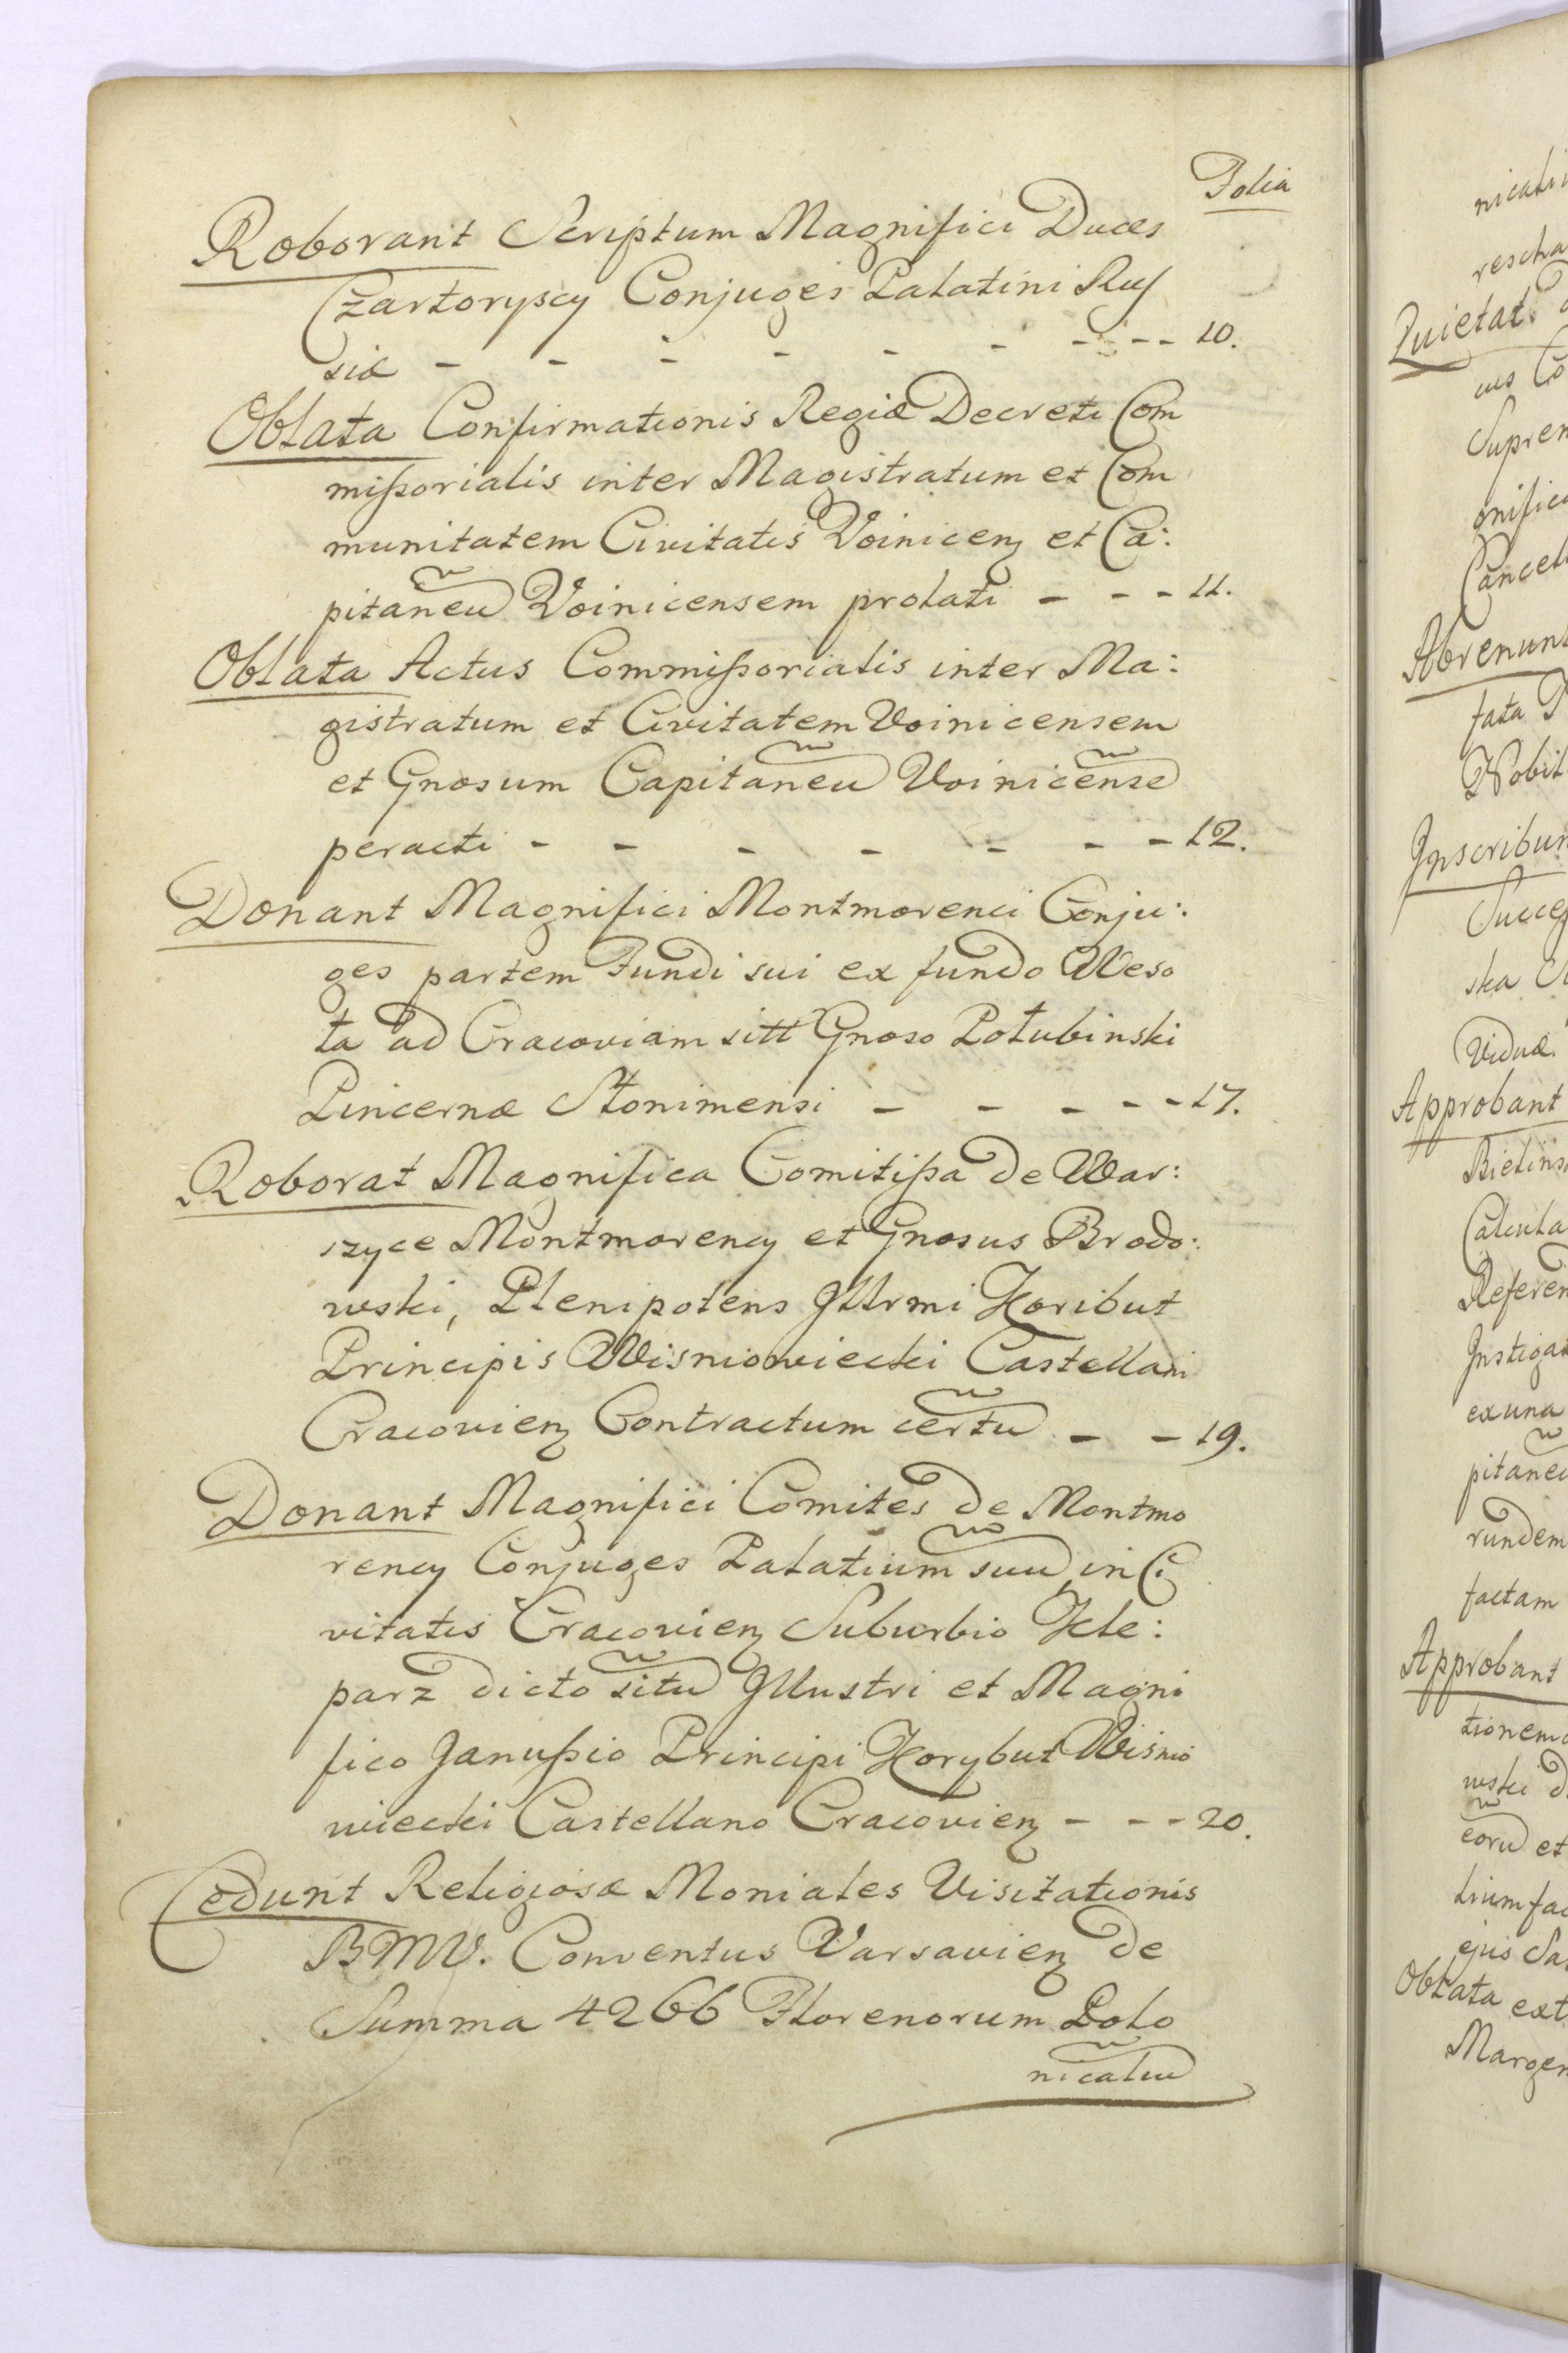 Folia
Roborant Scriptum Magnifici Duces
Czartoryscy Conjuges Palatini Rus
siæ - - - - - - - - - 10.
Oblata Confirmationis Regiæ Decreti Com
mißorialis inter Magistratum et Com
munitatem Civitatis Voinicen et Ca:
pitaneũ Voinicensem prolati - - - 11.
Oblata Actus Commißorialis inter Ma:
gistratum et Civitatem Voinicensem
et Gnosum Capitaneũ Voinicensẽ
peracti - - - - - - - 12.
Donant Magnifici Montmorenci Conju:
ges partem Fundi sui ex fundo Weso
ła ad Cracoviam sitt Gnoso Połubinski
Pincernæ Słonimensi - - - - - 17.
Roborat Magnifica Comitißa de War:
szyce Montmorency et Gnosus Brodo:
wski, Plenipotens Illrmi Koribut
Principis Wisniowiecki Castellani
Cracovien Contractum certũ - - 19.
Donant Magnifici Comites de Montmo
rency Conjuges Palatium suũ in Ci
vitatis Cracovien Suburbio Kle:
parz dicto sitũ Illustri et Magni
fico Janußio Principi Korybut Wisnio
wiecki Castellano Cracovien - - - 20.
Cedunt Religiosæ Moniales Visitationis
BMV. Conventus Varsavien de
Summa 4266 Florenorum Polo
nicaliũ
nicali
rescha
Quietat.
Supre
gnific
Cancel
Abrenun
fata
Nobil
Inscribun
Succeß
ska
Viduæ
Approbant
Bielins
Calcula
Referen
Instiga
ex una
pitane
rundem
factam
Approbant
tionem
wski
eorũ et
lium fac
ejus Sa
Oblata ext
Margen